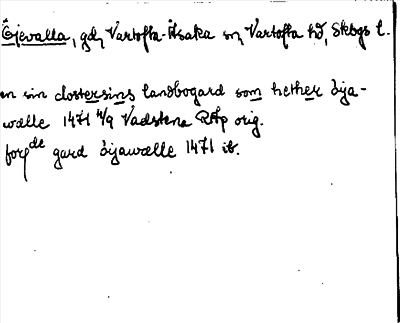 Öjevalla, gd, Vartofta-Åsaka sn, Vartofta hd, Skbgs l.
en sin clostersins landbogard som hether öija-
walle 1471 4/9 Vadstena RAp orig.
for^de gard öijawalle 1471 ib.